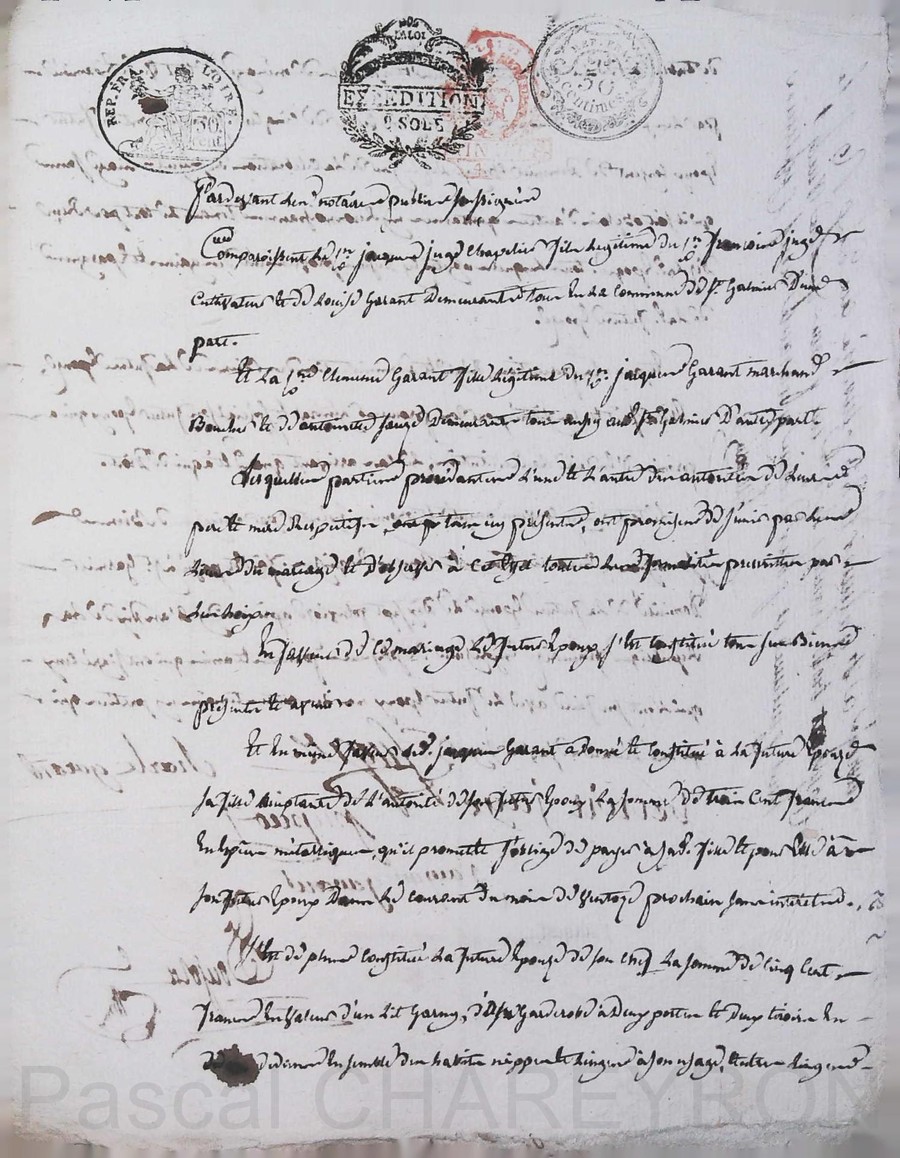 REP. FRA. LOIRE
50 Cent.
LA LOI
EXPEDITION
2 SOLS
REP. FRA.
50
centimes
Pardevant les nres notaires publics soussignés
Comparoissent le sr jacques juge chapelier fils légitime du sr françois juge
Cultivateur et de Louise Garant Demeurants tous en la Commune de st Galmier D'une
part.
Et la Garant fille légitime du sr jacques Garant marchand
Boucher et d'antoinette Demeurants tous aussi aud. st Galmier D'autre part.
Lesquelles parties procédantes L'une et L'autre de autorité de Leurs
pere et mere Respectifs, présents, ont promis de s'unir par Les
Liens du mariage et D'observer à Cet Effet toutes Les formalités prescrites par
Les Loix.
En faveur de Ce mariage Le futur Epoux s'est Constitué tous ses Biens
présents et à venir.
Et En même faveur led. jacques Garant a donné et Constitué à La future Epouse
sa fille acceptante de L'autorité de son futur Epoux La somme de trois Cent francs
En Espèces métalliques, qu'il promet et s'oblige de payer à sad. fille et pour Elle à
son futur Epoux Dans Le courant du mois de Ventose prochain sans intérêts.
S'est de plus Constitué La future Epouse de son chef La somme de Cinq Cent
francs En Valeur d'un Lit Garny, d'une Garderobe à Deux portes et Deux tiroirs En
Ensemble des habits nippes et Linges à son usage, et autres Linges
Pascal CHAREYRON